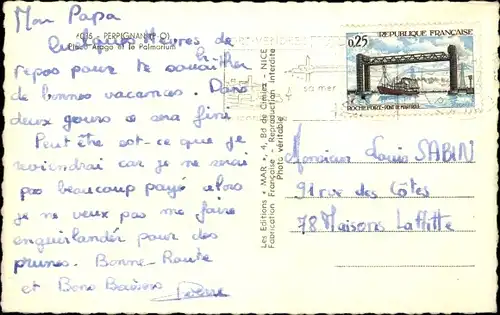 Mon Papa
6035 - PERPIGNAN (P.-O.)
Place Arago et le Palmarium
Quelques Heures de
repos pour te souaiter
de bonnes vacances. Dans
deux jours ce sera fini
Peut être est-ce que je
reviendrai car je ne serai
pas beaucoup payé alors
je ne veux pas me faire
enguirlander pour des
prunes. Bonne Route
et Bons Baisers
Les Editions " MAR ", 4, Bd de Cimiez - NICE
Fabrication Française - Reproduction Interdite
Photo véritable
sa mer
REPUBLIQUE FRANÇAISE
0,25
ROCHEFORT - PONT DE MARTROU
Monsieur Louis SABIN
91 rue des Côtes
78 Maisons Laffitte